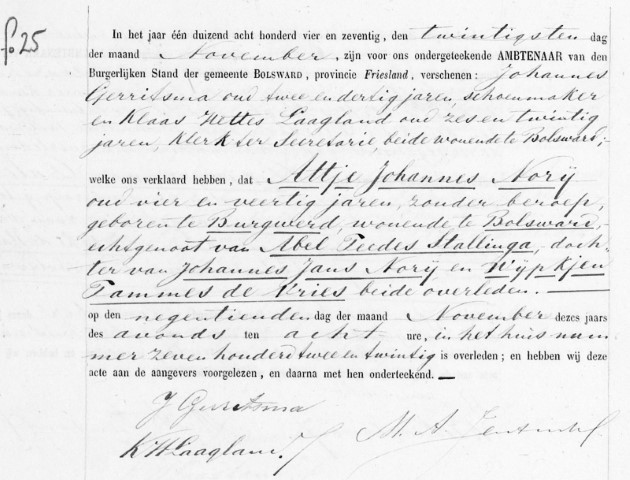 fo 25
In het jaar één duizend acht honderd vier en zeventig, den twintigsten dag
der maand November, zijn voor ons ondergeteekende AMBTENAAR van den
Burgerlijken Stand der gemeente BOLSWARD, provincie Friesland, verschenen: Johannes
Gerritsma oud twee en dertig jaren, schoenmaker
en Klaas Hettes Laagland oud zes en twintig
jaren, Klerk ter Secretarie, beide wonende te Bolsward,
welke ons verklaard hebben, dat Attje Johannes Norij
oud vier en veertig jaren, zonder beroep,
geboren te Burgwerd, wonende te Bolsward,
echtgenoot van Abel Feedes Stallinga, doch-
ter van Johannes Jans Norij en Wijpkjen
Tammes de Vries beide overleden.
op den negentienden dag der maand November dezes jaars
des avonds ten acht ure, in het huis num
mer zeven honderd twee en twintig is overleden; en hebben wij deze
acte aan de aangevers voorgelezen, en daarna met hen onderteekend. —
J Gerritsma
K H Laagland
M. A.